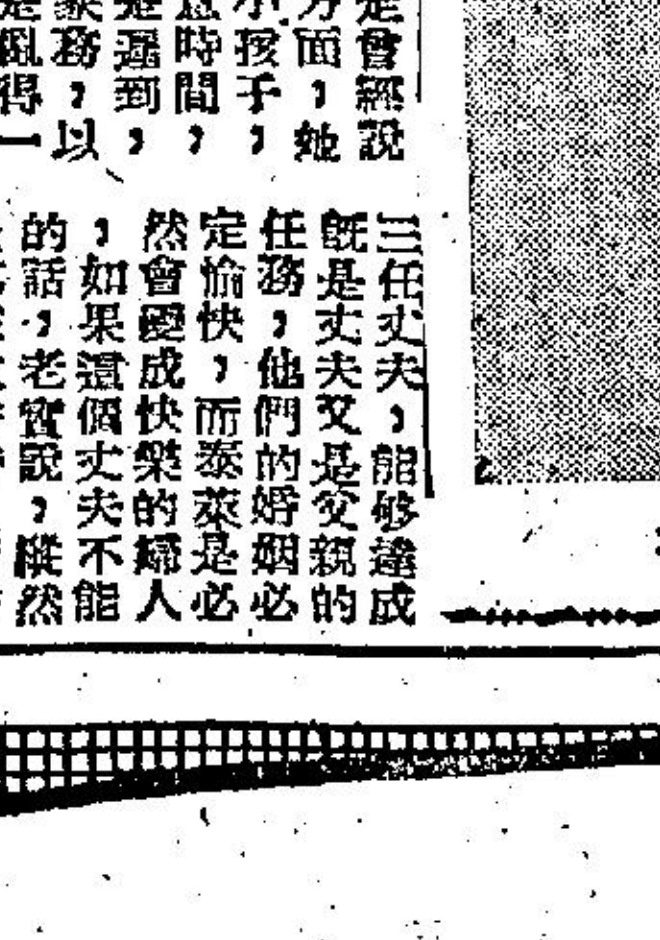 會經說
方面，她
小孩子，
時間，
是遲到，
家務，以
是亂得一
三任丈夫，能够達成
既是丈夫又是父親的
任務，他們的婚姻必
定愉快，而泰萊是必
然會變成快樂的婦人
，如果這個丈夫不能
的話，老實說，縱然